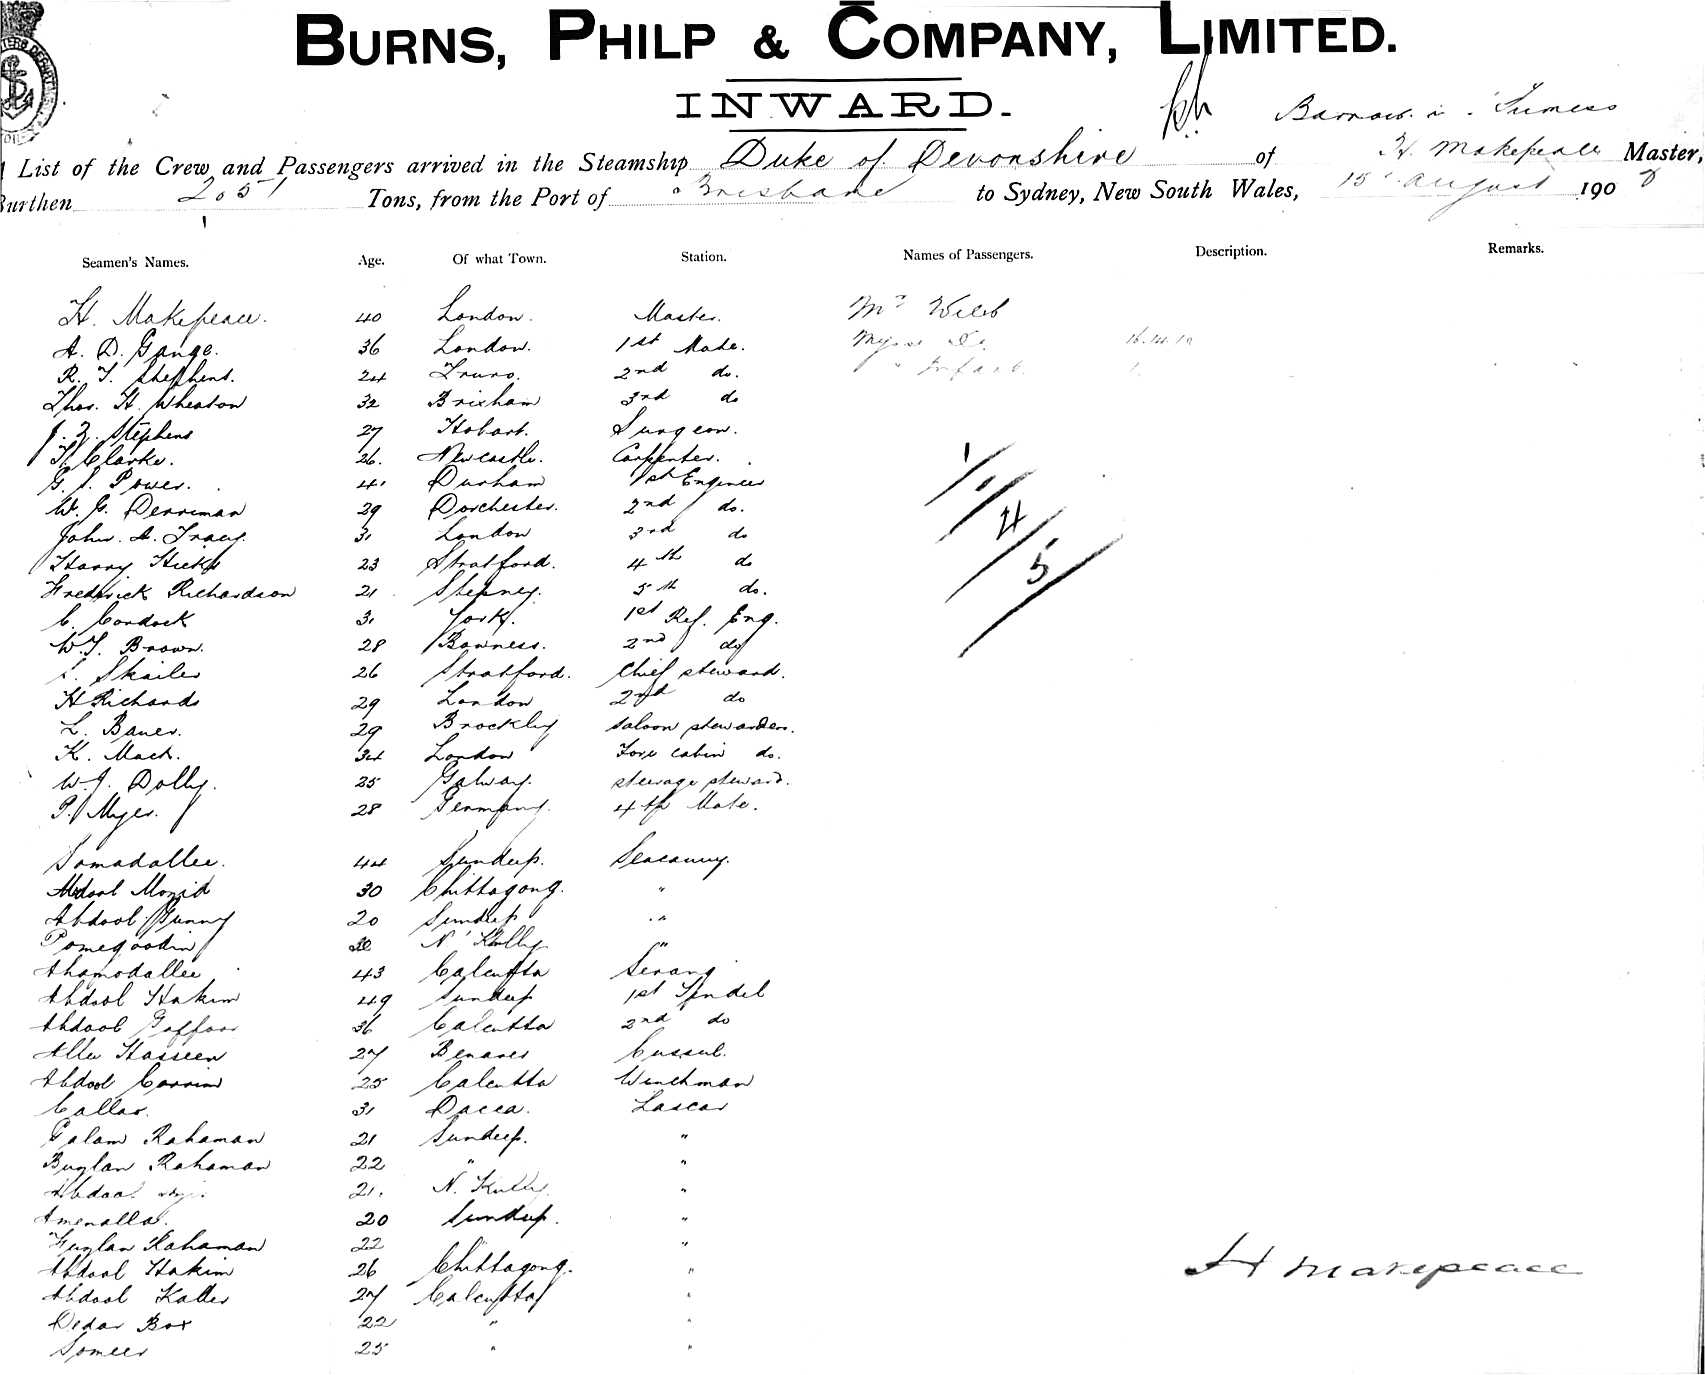 BURNS, PHILP & COMPANY, LIMITED.
INWARD.
Barrow in Furness
List of the Crew and Passengers arrived in the Steamship Duke of Devonshire of H. Makepeace Master,
Burthen 2051 Tons, from the Port of Brisbane to Sydney, New South Wales, 15 August 1908
Seamen's Names. Age. Of what Town. Station. Names of Passengers. Description. Remarks.
H. Makepeace. 40 London. Master. Mr Webb
A. D. Gange. 36 London. 1st Mate.
R. T. Stephens. 24 Truro. 2nd do. Infant.
Thos. H. Wheaton 32 Brixham 3rd do
J. Z. Stephens 27 Hobart. Surgeon.
H. Clarke. 26. Newcastle. Carpenter.
G. S. Power. 41 Durham 1st Engineer
W. G. Derriman 29 Dorchester. 2nd do.
John. A. Tracy. 31 London 3rd do
Harry Hicks 23 Stratford. 4th do
Frederick Richardson 21 Stepney. 5th do.
C. Cordock 31 York. 1st Ref. Eng.
W. T. Brown. 28 Bowness. 2nd do
Skailes 26 Stratford. Chief steward.
H Richards 29 London 2nd do
L. Bauer. 29 Brockley saloon stewardess.
K. Mack. 34 London Fore cabin do.
W. J. Dolly. 25 Galway. steerage steward.
P. Myer. 28 Germany. 4th Mate.
Somadallee. 44 Sundeep. Seacunny.
Abdool Mozid 30 Chittagong. "
Abdool Gunny 20 Sundeep "
Pomegoodin N' Kully "
Ahamodallee 43 Calcutta Serang
Abdool Hakim 49 Sundeep 1st Tindel
Abdool Gaffoor 36 Calcutta 2nd do
Allee Hosseen 27 Benares Cussub.
Abdool Corrim 25 Calcutta Winchman
Callar. 31 Dacca. Lascar
Golam Rahaman 21 Sundeep. "
Buzlan Rahaman 22 " "
Abdool 21. N. Kully. "
Amenalla. 20 Sundeep. "
Fuzlan Rahaman 22 "
Abdool Hakim 26 Chittagong. "
Abdool Kader 27 Calcutta "
Dedar Box 22 " "
Someer 25 " "
1/1/4/5
H Makepeace